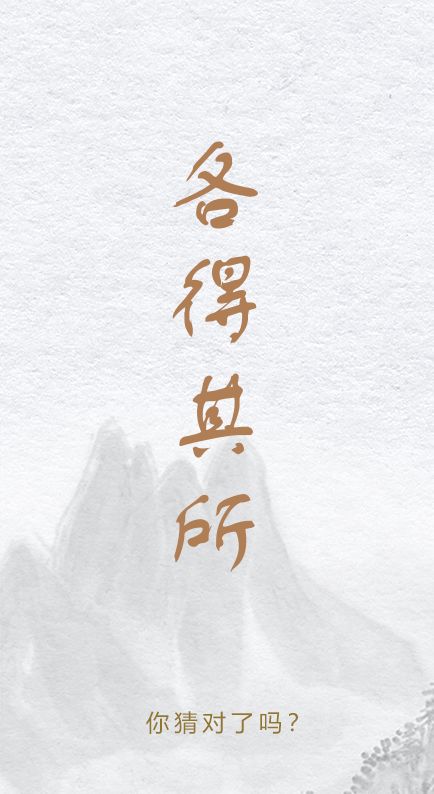 各得其所
你猜对了吗？